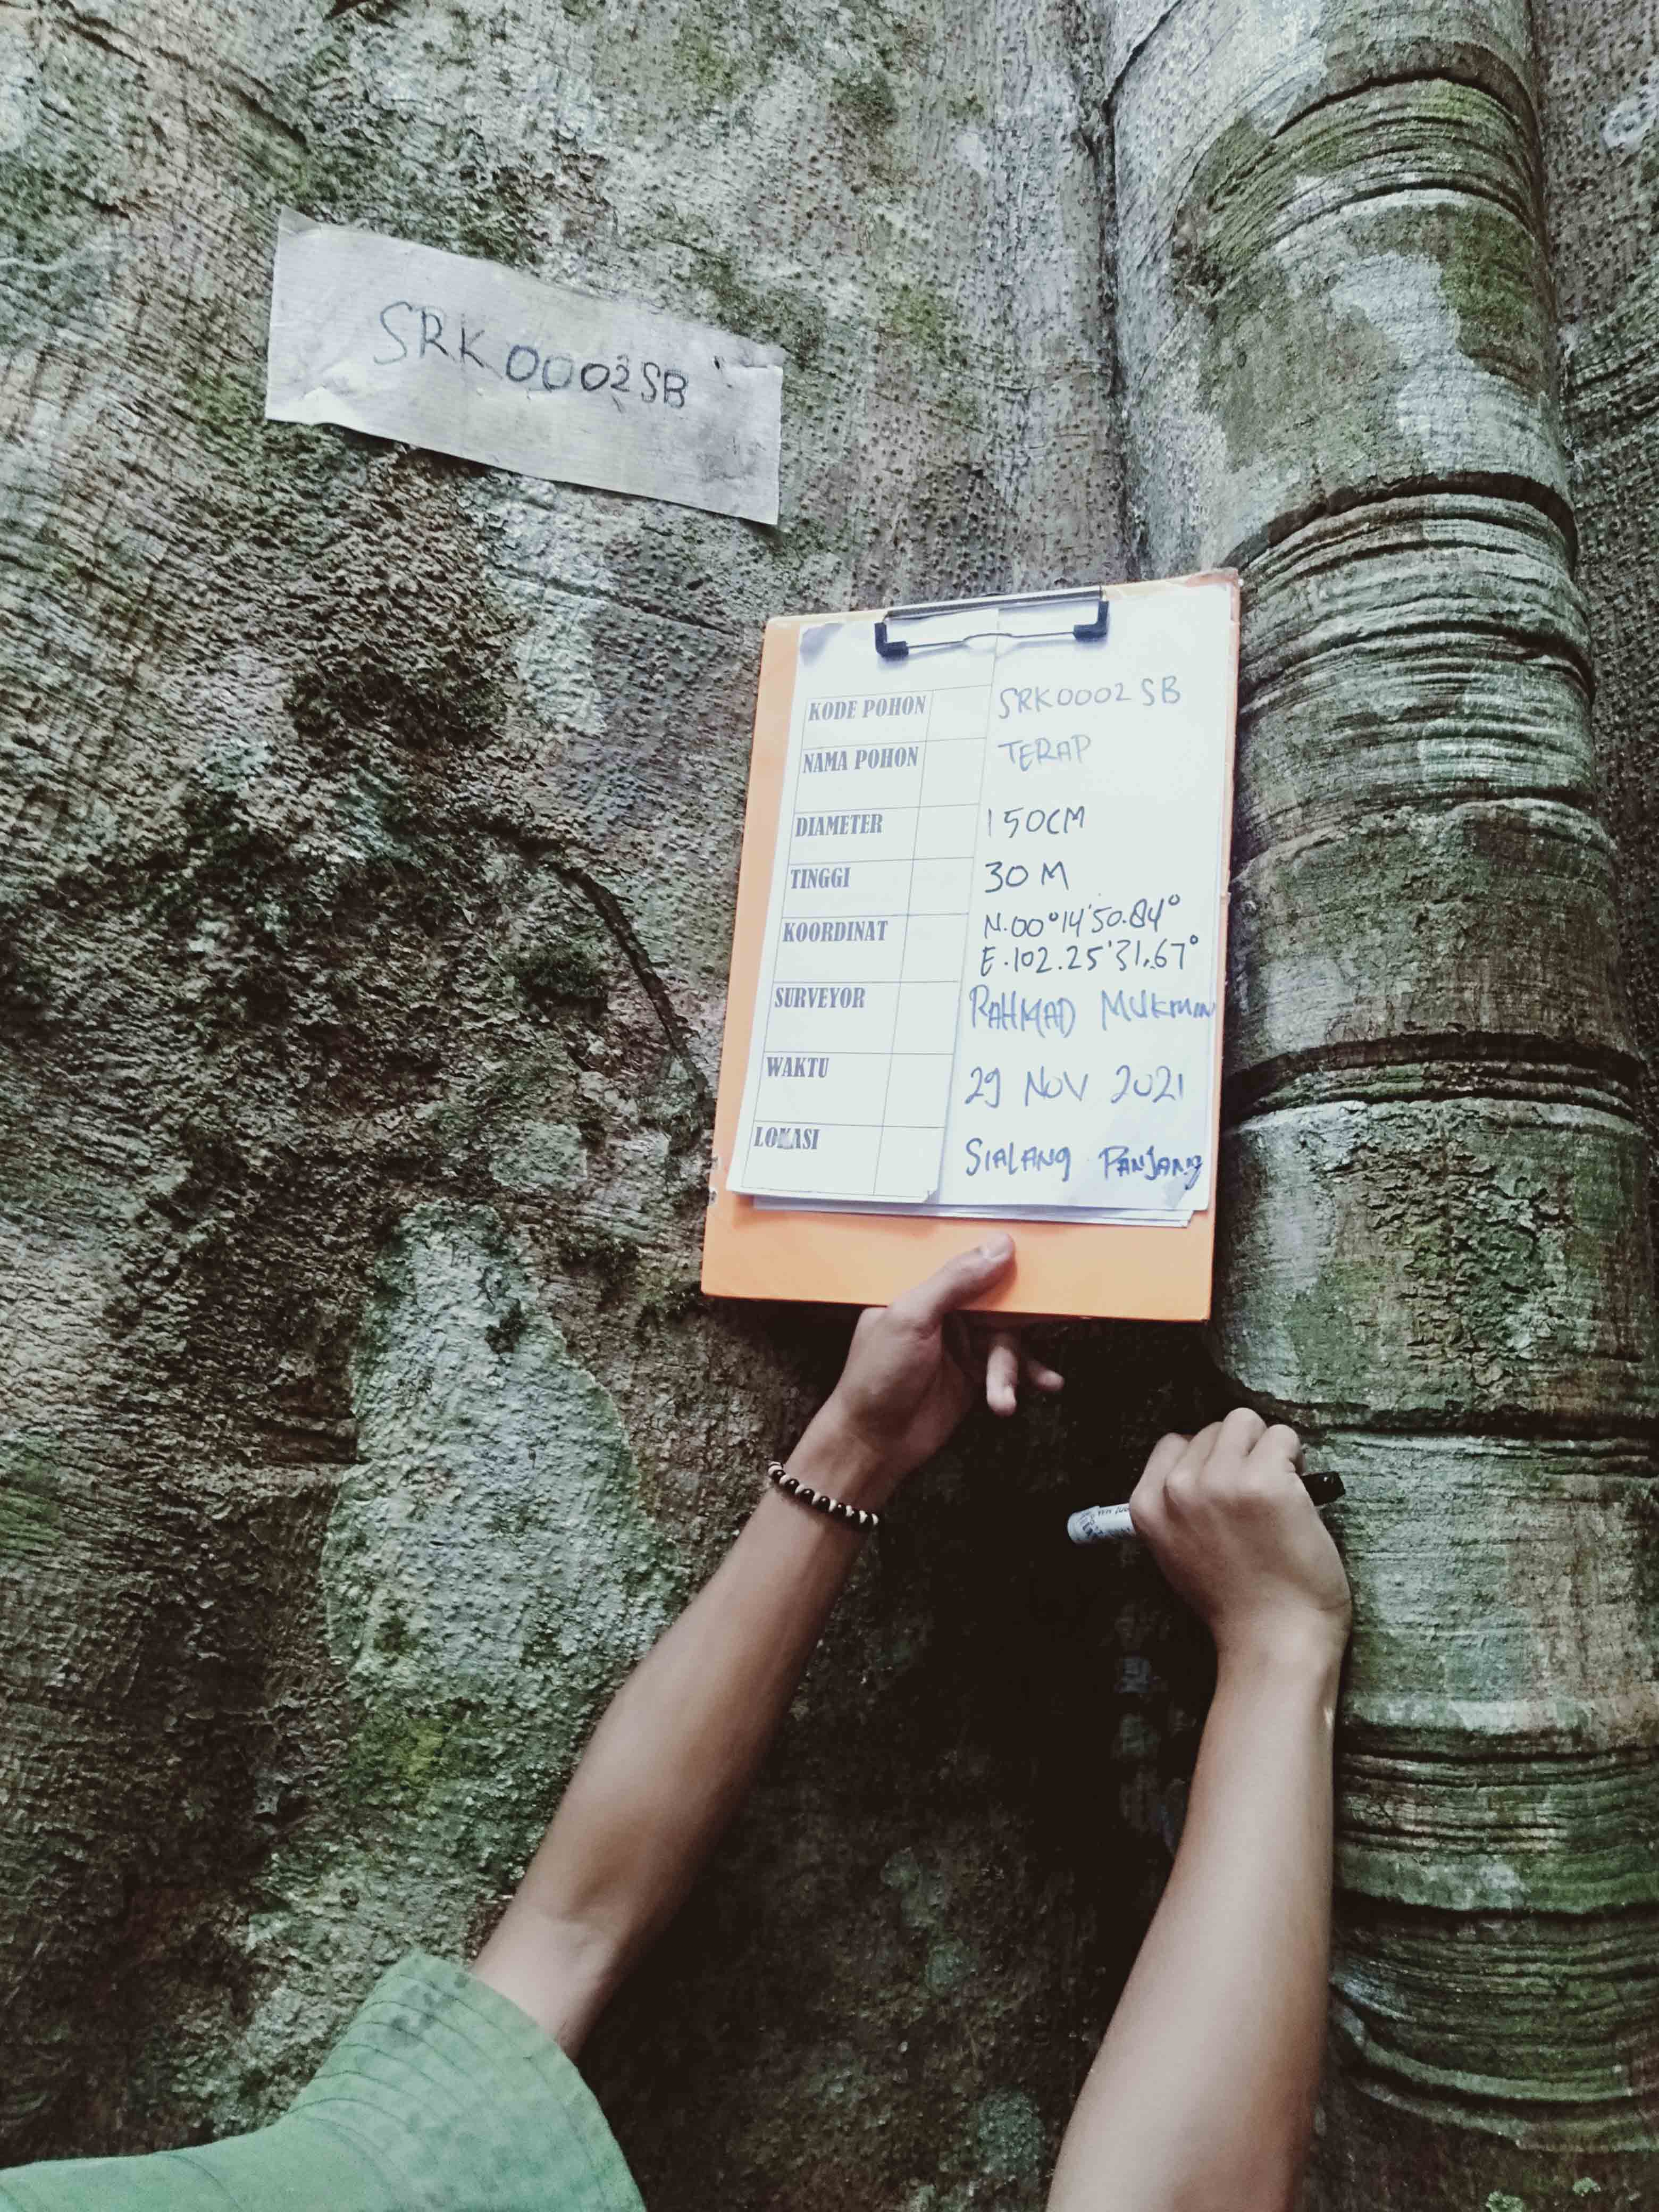 SRK0002SB
KODE POHON SRK0002SB
NAMA POHON TERAP
DIAMETER 150CM
TINGGI 30 M
KOORDINAT N.00°14'50.84°
E.102.25'31.67°
SURVEYOR RAHMAD MUKMIN
WAKTU 29 NOV 2021
LOKASI SIALANG PANJANG